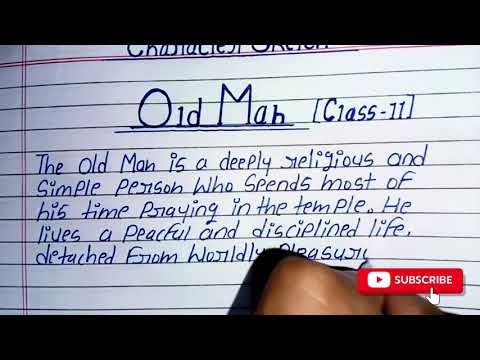 Character Sketch
Old Man [Class-11]
The Old Man is a deeply religious and
simple person who spends most of
his time praying in the temple. He
lives a peacful and disciplined life,
detached from worldly pleasur
SUBSCRIBE